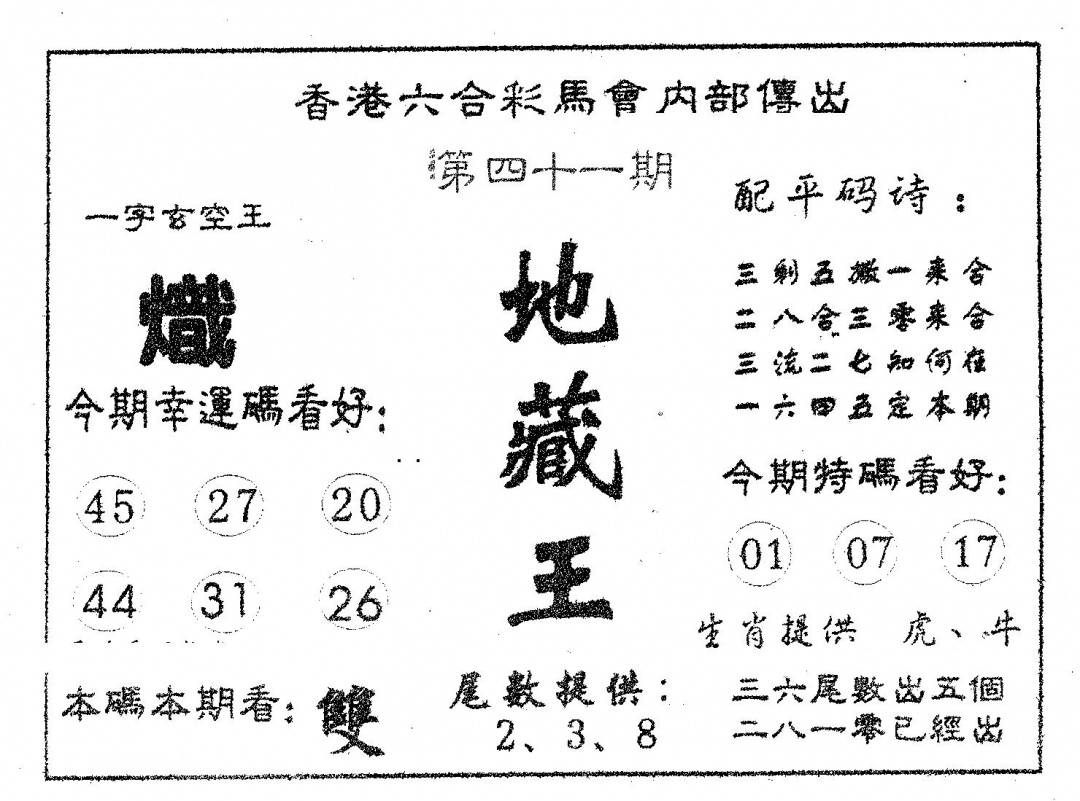 香港六合彩馬會内部傳出
第四十一期
一字玄空王
熾
今期幸運碼看好：
45 27 20
44 31 26
本碼本期看：雙
地
藏
王
尾數提供：
2、3、8
配平码诗：
三剩五搬一来合
二八合三零来合
三流二七知何在
一六四五定本期
今期特碼看好：
01 07 17
生肖提供 虎、牛
三六尾數出五個
二八一零已經出